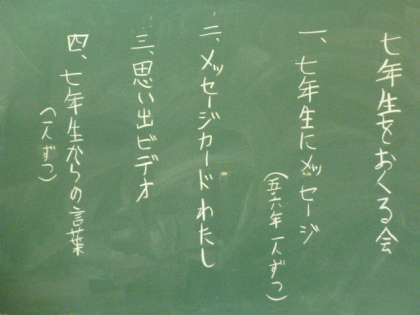 七年生をおくる会
一、七年生にメッセージ
(五六年 一人ずつ)
二、メッセージカードわたし
三、思い出ビデオ
四、七年生からの言葉
(一人ずつ)